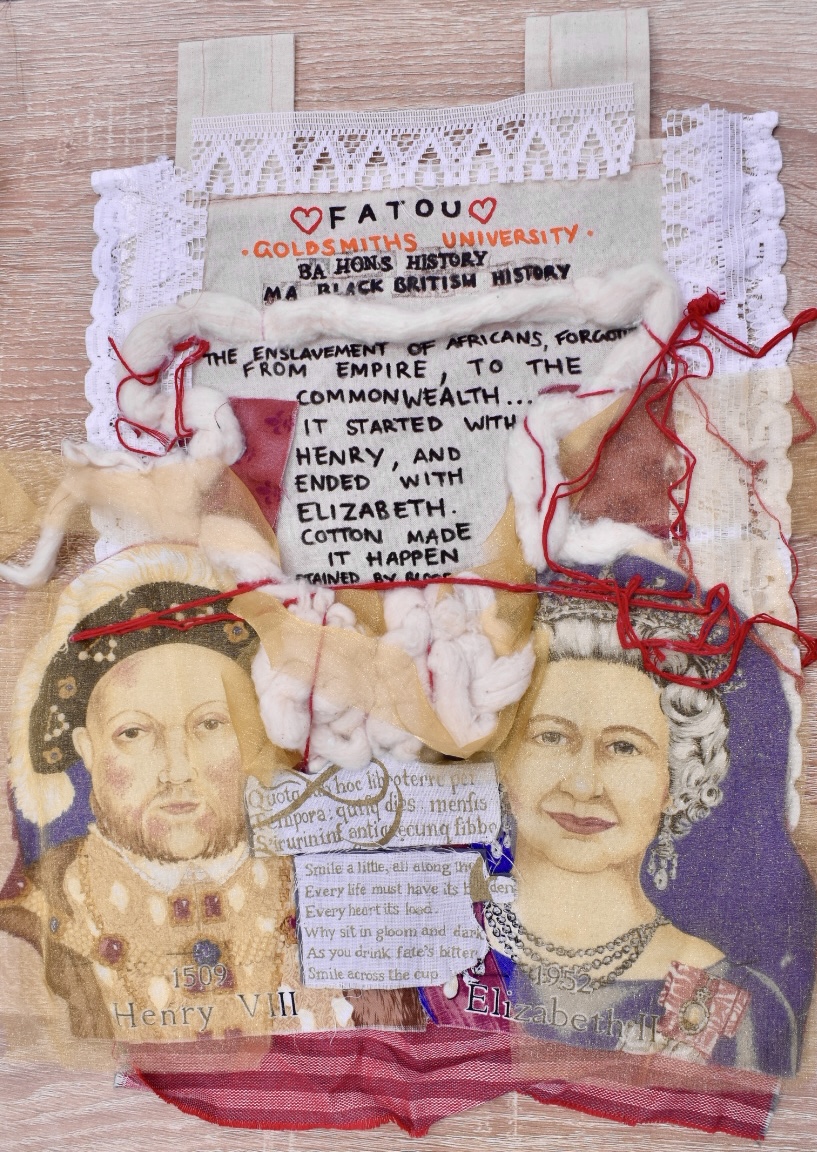 FATOU
·GOLDSMITHS UNIVERSITY·
BA HONS HISTORY
MA BLACK BRITISH HISTORY
THE ENSLAVEMENT OF AFRICANS,
FROM EMPIRE, TO THE
COMMONWEALTH...
IT STARTED WITH
HENRY, AND
ENDED WITH
ELIZABETH.
COTTON MADE
IT HAPPEN
STAINED BY
hoc
dies, mensis
Smile a little, all along the
Every life must have its burden
Every heart its load.
Why sit in gloom and dark
As you drink fate's bitter
Smile across the cup
1509
Henry VIII
1952
Elizabeth II